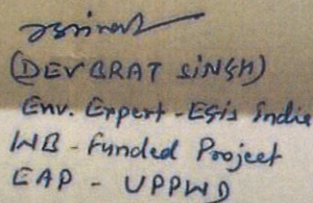 (DEVBRAT SINGH)
Env. Expert - Egis India
WB - Funded Project
EAP - UPPWD